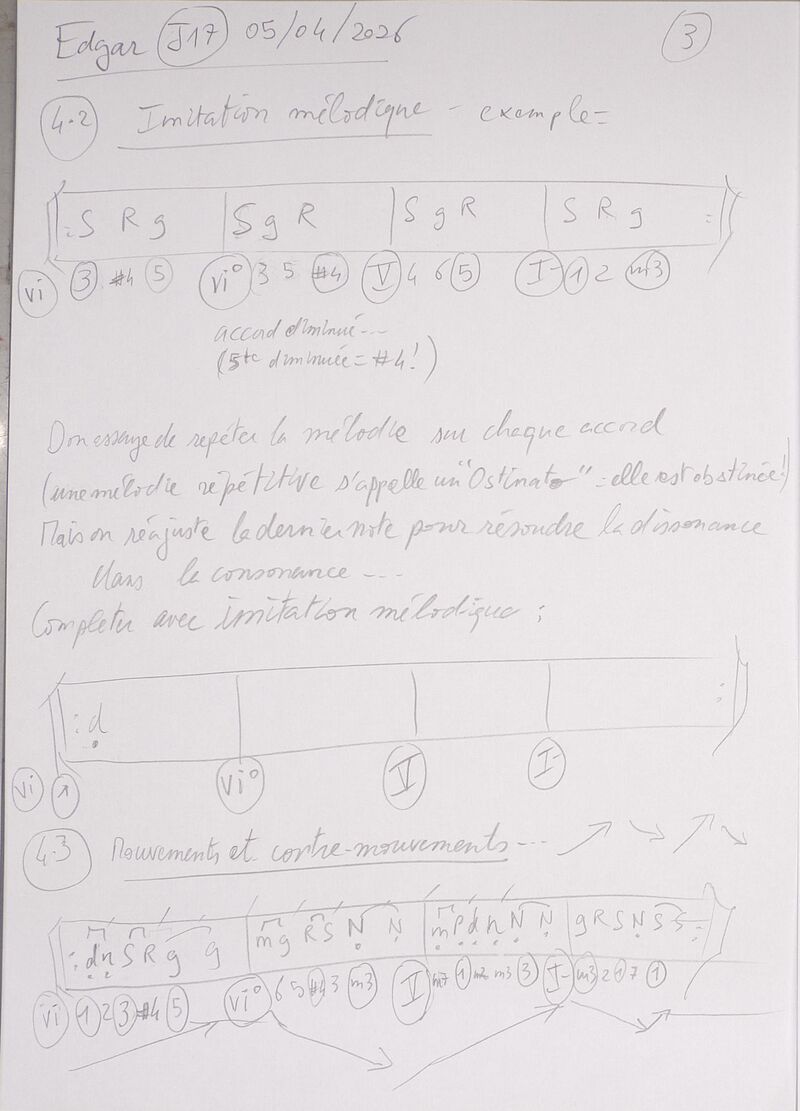 Edgar J17 05/04/2026 3
4.2 Imitation mélodique - exemple =
: S R g | S g R | S g R | S R g :
vi 3 #4 5 vi° 3 5 #4 V 4 6 5 I- 1 2 m3
accord diminué...
(5te diminuée = #4!)
Don essaye de repéter la mélodie sur chaque accord
(une mélodie répétitive s'appelle un "Ostinato" = elle est obstinée!)
Mais on réajuste la dernier note pour résoudre la dissonance
dans la consonance ...
Completer avec imitation mélodique :
: d | | | :
vi 1 vi° V I-
4.3 Mouvements et contre-mouvements...
: d n S R g g | m g R S N N | m P d n N N | g R S N S S :
vi 1 2 3 #4 5 vi° 6 5 #4 3 m3 V m7 1 m2 m3 3 I- m3 2 1 7 1